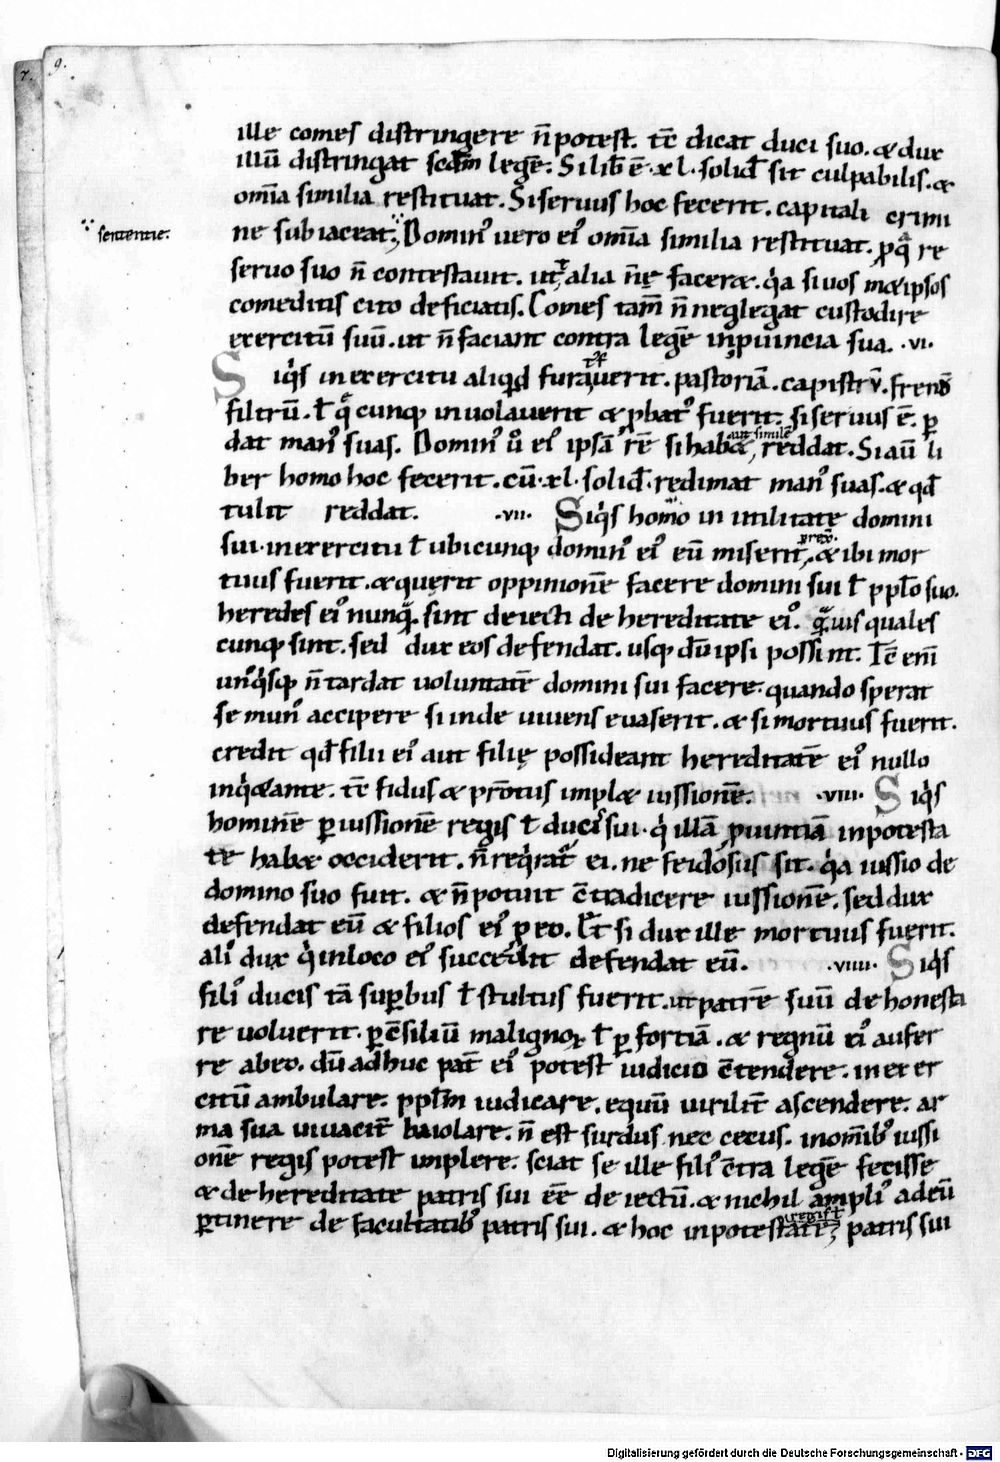 7. 9.
ille comes distringere n̄ potest. tc̄ dicat duci suo. & dux
illū distringat scdm̄ legē. Si lib̄ ē .xl. solid̄ sit culpabilis. &
om̄ia similia restituat. Si seruus hoc fecerit. capitali crimi
sententie:
ne subiaceat; Domin᾽ uero ei᾽ om̄ia similia restituat. ꝓ qᵃ re
seruo suo n̄ contestauit. ut alia n̄ę facer&. qⁱa si uos m&ipsos
comeditis cito deficiatis. Comes tam̄ n̄ neglegat custodire
exercitū suū. ut n̄ faciant contra legē in ꝓuincia sua. .vi.
Siqⁱs in exercitu aliqⁱd furauerit. pastoriā. capistrū. frenū
filtrū. ł qᵃcunq; inuolauerit & ꝓbat᾽ fuerit. si seruus ē. ꝑ
dat man᾽ suas. Domin᾽ u᷒ ei᾽ ipsā rē si hab& aut similē, reddat. Si aū li
ber homo hoc fecerit. cū .xl. solid̄. redimat man᾽ suas. & qd̄
tulit reddat. .vii. Siqⁱs homo in utilitate domini
sui. in exercitu ł ubicunq; domin᾽ ei᾽ eū miserit, & ibi mor
tuus fuerit. & quęrit oppinionē facere domini sui ł ppl̄o suo.
heredes ei᾽ nunqᵃ. sint deiecti de hereditate ei᾽. qᵃuis quales
cunq; sint. sed dux eos defendat. usq; dū ipsi possint. Tc̄ enī
un᾽qⁱsq; n̄ tardat uoluntatē domini sui facere. quando sperat
se mun᾽ accipere si inde uiuens euaserit. & si mortuus fuerit.
credit qd̄ filii ei᾽ aut filię possideant hereditatē ei᾽ nullo
inqⁱ&ante. tc̄ fidus & prōtus impl& iussionē. .viii. Siqⁱs
hominē ꝑ iussionē regis ł ducis sui. qⁱ illā ꝓuintiā in potesta
te hab& occiderit. n̄ reqⁱrat᷑ ei. ne feidosus sit. qⁱa iussio de
domino suo fuit. & n̄ potuit c̄tradicere iussionē. sed dux
defendat eū & filios ei᾽ ꝓ eo. Et si dux ille mortuus fuerit.
ali᾽ dux qⁱ in loco ei᾽ succedit defendat eū. .viiii. Siqⁱs
fili᾽ ducis tā suꝑbus ł stultus fuerit. ut patrē suū dehonesta
re uoluerit. ꝑ c̄siliū malignoꝝ ł ꝑ fortiā. & regnū ei᾽ aufer
re ab eo. dū adhuc pat̄ ei᾽ potest iudicio c̄tendere. in exer
citū ambulare. ppl̄m iudicare. equū uirilit̄ ascendere. ar
ma sua uiuacit̄ baiolare. n̄ est surdus nec cecus. in om̄ib᾽ iussi
onē regis potest implere. sciat se ille fili᾽ c̄tra legē fecisse
& de hereditate patris sui ēē deiectū. & nichil ampli᾽ ad eū
ꝑtinere de facultatib᾽ patris sui. & hoc in potestate regis ł, patris sui
Digitalisierung gefördert durch die Deutsche Forschungsgemeinschaft - DFG